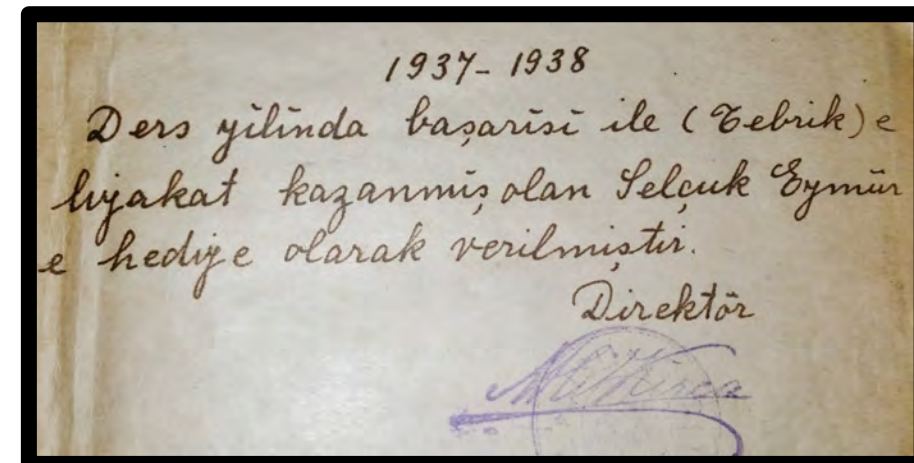 1937-1938
Ders yilinda başarisi ile (Tebrik)e
liyakat kazanmiş olan Selçuk Eymür
e hediye olarak verilmiştir.
Direktör